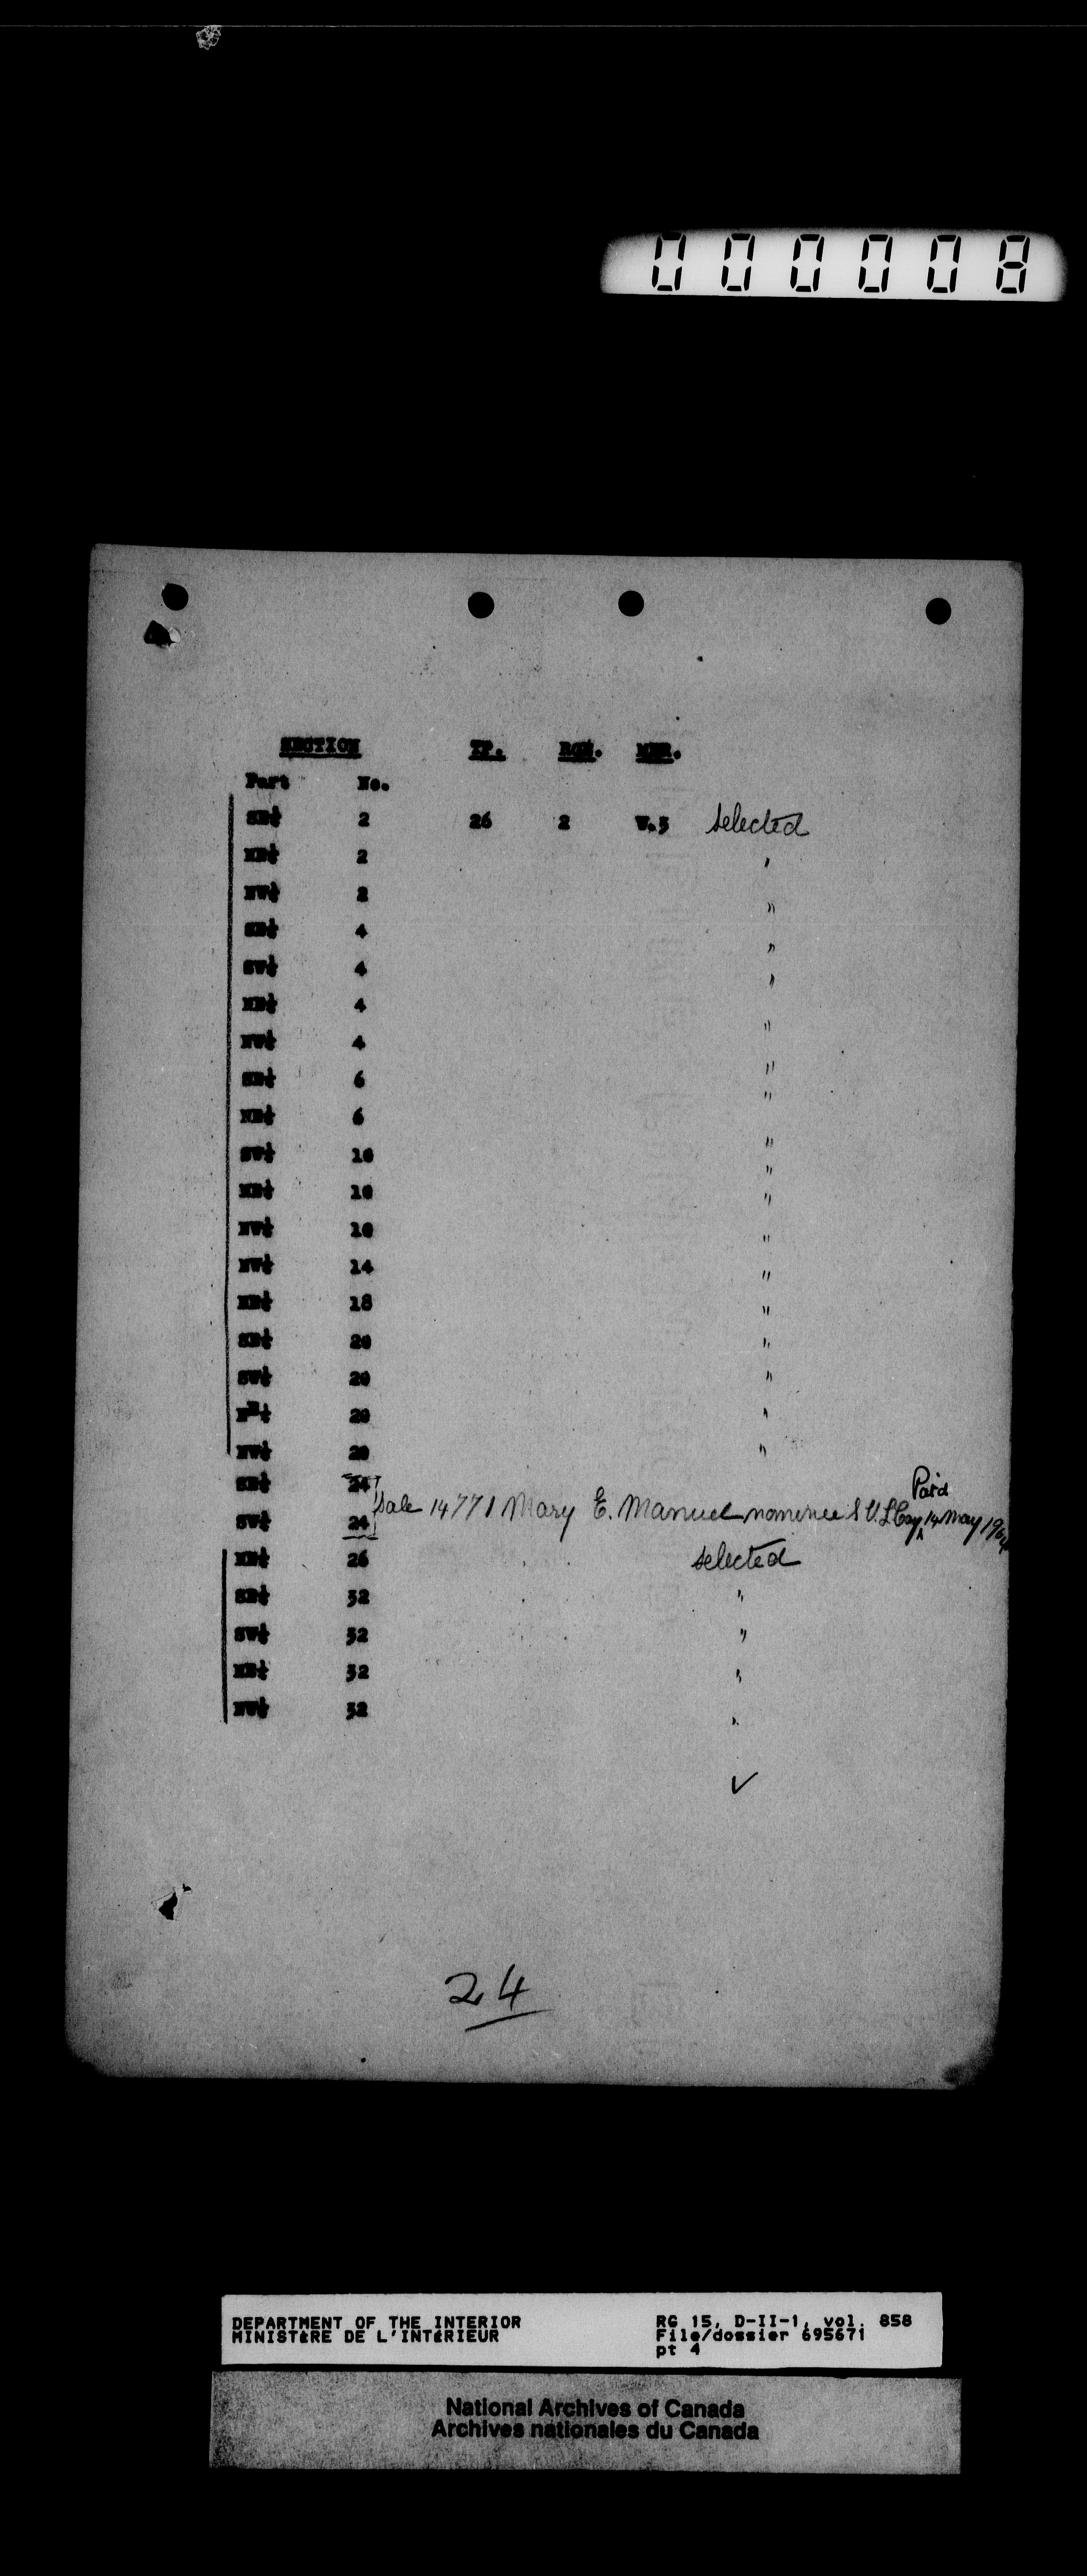 000008
SECTION TP. RGE. MER.
Part No.
SE¼ 2 26 2 W.3 selected
NE¼ 2 "
NW¼ 2 "
SE¼ 4 "
SW¼ 4 "
NE¼ 4 "
NW¼ 4 "
SE¼ 6 "
NE¼ 6 "
SW¼ 10 "
NE¼ 10 "
NW¼ 10 "
NW¼ 14 "
NE¼ 18 "
SE¼ 20 "
SW¼ 20 "
NE¼ 20 "
NW¼ 20 "
SE¼ 24 Paid
SW¼ 24 Sale 14771 Mary E. Manuel nominee S.V.L. Coy 14 May
NE¼ 26 selected
SE¼ 32 "
SW¼ 32 "
NE¼ 32 "
NW¼ 32 "
✓
24
DEPARTMENT OF THE INTERIOR RG 15, D-II-1, vol. 858
MINISTÈRE DE L'INTÉRIEUR File/dossier 695671
pt 4
National Archives of Canada
Archives nationales du Canada